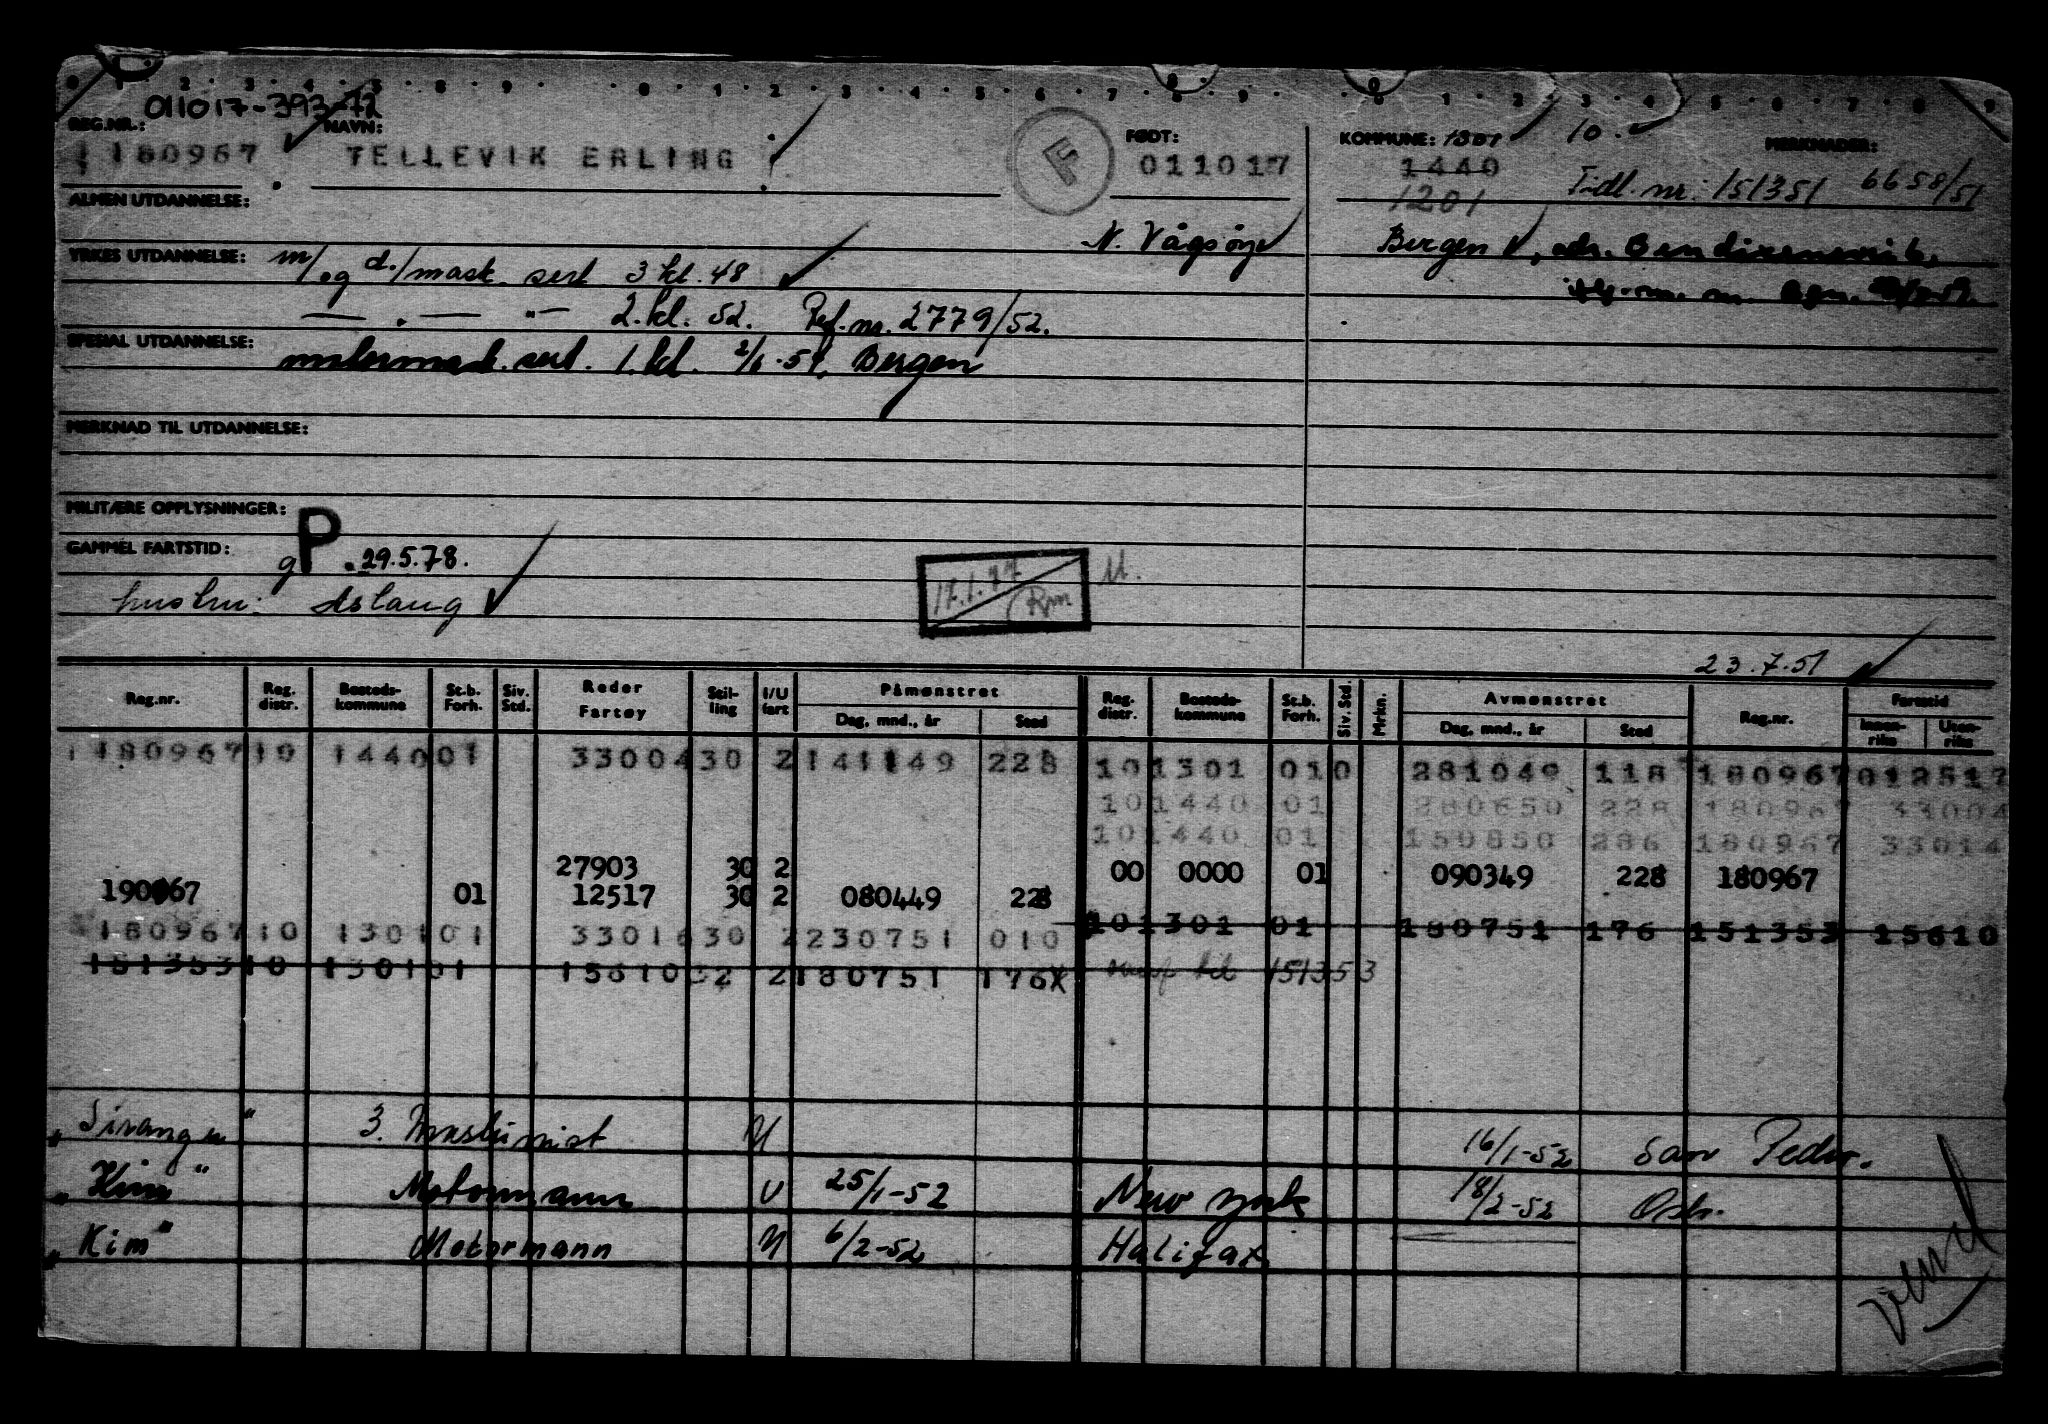 011017-393-72
REG.NR.: NAVN: FØDT: KOMMUNE: 1301 10. MERKNADER:
180967 TELLEVIK ERLING F 011017 1440
1201 Tidl. nr. 151351 6658/51
ALMEN UTDANNELSE:
N. Vågsøy Bergen, adr.
YRKES UTDANNELSE: m/og d./mask. sert 3 kl. 48
— . — " — 2. kl. 52. Ref. nr. 2779/52.
SPESIAL UTDANNELSE: sert. 1. kl. Bergen
MERKNAD TIL UTDANNELSE:
MILITÆRE OPPLYSNINGER:
GAMMEL FARTSTID: gP. 29.5.78.
hustru: Aslaug
17.1.77 Rm M.
23.7.51
Reg.nr. Reg. distr. Bosteds-kommune St.b. Forh. Siv. Std. Reder Fartøy Stil-ling I/U fart Påmønstret Dag, mnd., år Sted Reg. distr. Bosteds-kommune St.b. Forh. Siv. Std. Mrkn. Avmønstret Dag, mnd., år Sted Reg.nr. Farstid Innen-riks Uten-riks
180967 10 1440 01 33004 30 2 141149 228 10 1301 01 0 281049 118 180967 012517
10 1440 01 280650 228 180967 33004
10 1440 01 150850 286 180967 33014
27903 30 2 00 0000 01 090349 228 180967
01 12517 30 2 080449 228
180967 10 1301 01 33016 30 2 230751 010 10 1301 01 180751 176 151353 15610
151353 10 1301 01 15610 2 180751 176 151353
3. Maskinist U 16/1-52 San Pedro.
"Kim" Motormann U 25/1-52 New York 18/2-52 Oslo.
"Kim" Motormann U 6/2-52 Halifax